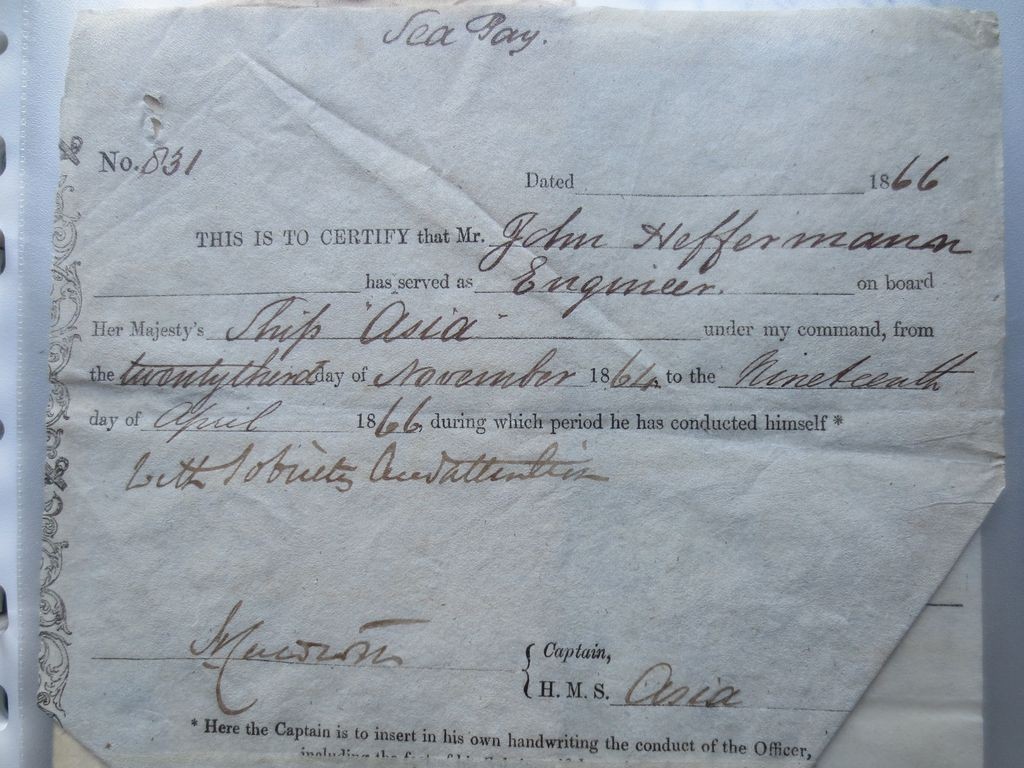 Sea Pay.
No. 831
Dated 1866
THIS IS TO CERTIFY that Mr. John Heffermann
has served as Engineer. on board
Her Majesty's Ship "Asia" under my command, from
the twenty third day of November 1864, to the Nineteenth
day of April 1866, during which period he has conducted himself *
With Sobriety and attention
Captain,
H. M. S. Asia
* Here the Captain is to insert in his own handwriting the conduct of the Officer,
including the